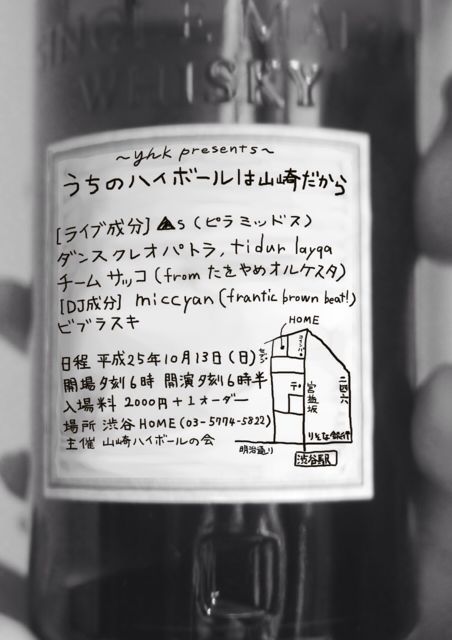 SINGLE MALT
WHISKY
～yhk presents～
うちのハイボールは山崎だから
[ライブ成分] ▲s (ピラミッドス)
ダンスクレオパトラ, tidur layqa
チーム サッコ (from たをやめオルケスタ)
[DJ成分] miccyan (frantic brown beat!)
ビブラスキ
日程 平成25年10月13日 (日)
開場夕刻6時 開演夕刻6時半
入場料 2000円+1オーダー
場所 渋谷HOME (03-5774-5822)
主催 山崎ハイボールの会
HOME
宮益坂
二四六
りそな銀行
明治通り
渋谷駅